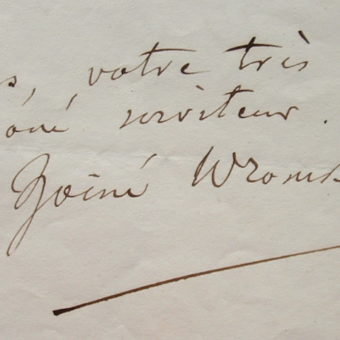 s, votre très
oné serviteur.
Hoëné Wronsk